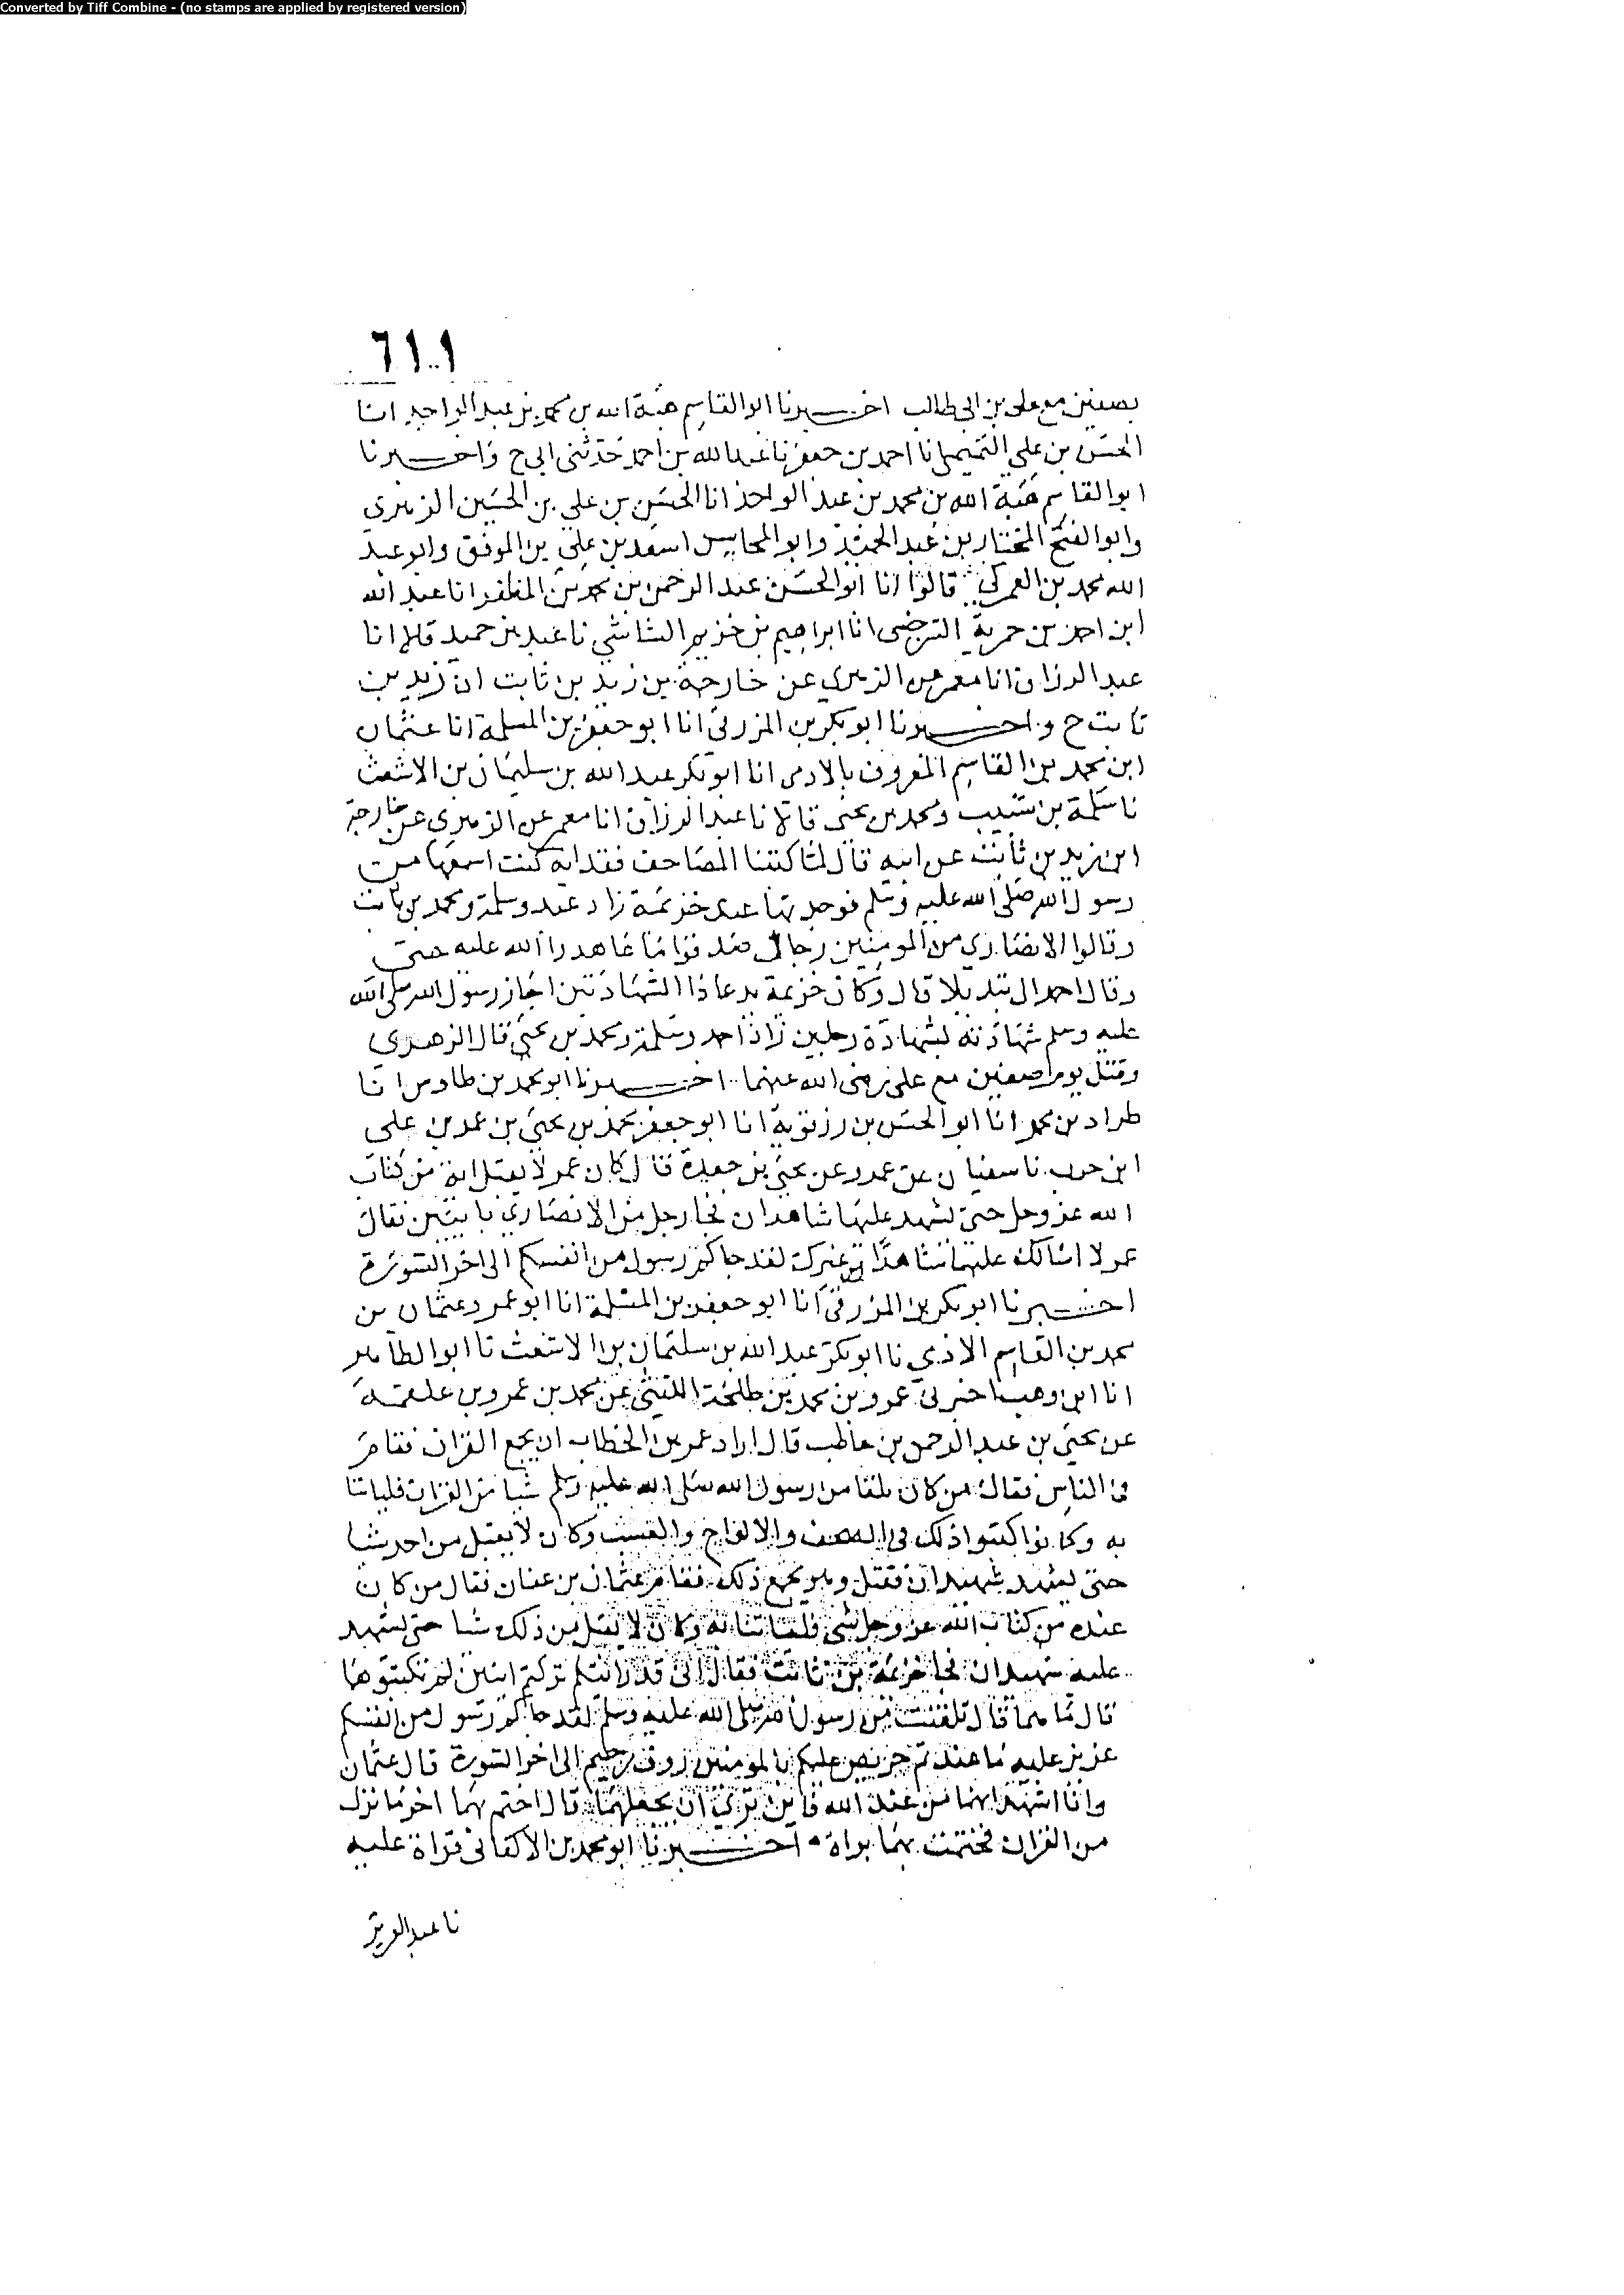 Converted by Tiff Combine - (no stamps are applied by registered version)
٦١١
بصفين مع علي بن ابي طالب اخبرنا ابو القاسم هبة الله بن محمد بن عبد الواحد انا
الحسن بن علي التميمي انا احمد بن جعفر نا عبد الله بن احمد حدثني ابي ح واخبرنا
ابو القاسم هبة الله بن محمد بن عبد الواحد انا الحسن بن علي بن الحسين الزهري
وابو الفتح المختار بن عبد الحميد وابو المحاسن اسعد بن علي بن الموفق وابو عبد
الله محمد بن العمركي قالوا انا ابو الحسن عبد الرحمن بن محمد بن المظفر انا عبد الله
ابن احمد بن حموية السرخسي انا ابراهيم بن خزيم الشاشي نا عبد بن حميد قالا انا
عبد الرزاق انا معمر عن الزهري عن خارجة بن زيد بن ثابت ان زيد بن
ثابت ح واخبرنا ابو بكر بن المزرفي انا ابو جعفر بن المسلمة انا عثمان
ابن محمد بن القاسم المعروف بالادمي انا ابو بكر عبد الله بن سليمان بن الاشعث
نا سلمة بن شبيب ومحمد بن يحيى قالا نا عبد الرزاق انا معمر عن الزهري عن خارجة
ابن زيد بن ثابت عن ابيه قال لما كتبنا المصاحف فقد اية كنت اسمعها من
رسول الله صلى الله عليه وسلم فوجدتها عند خزيمة زاد عبد وسلمة ومحمد بن ثابت
وقالوا الانصاري من المومنين رجال صدقوا ما عاهدوا الله عليه حتى
وقال احمد ال تبديلا قال وكان خزيمة يدعا ذا الشهادتين اجاز رسول الله صلى الله
عليه وسلم شهادته بشهادة رجلين زاد احمد وسلمة ومحمد بن يحيى قال الزهري
وقتل يوم صفين مع علي رضى الله عنهما اخبرنا ابو محمد بن طاوس انا
طراد بن محمد انا ابو الحسن بن رزقوية انا ابو جعفر محمد بن يحيى بن عمر بن علي
ابن حرب نا سفيان عن عمرو عن يحيى بن جعدة قال كان عمر لا يقبل اية من كتاب
الله عز وجل حتى يشهد عليها شاهدان فجا رجل من الانصاري بايتين فقال
عمر لا اسالك عليها شاهدا غيرك لقد جاكم رسول من انفسكم الى اخر السورة
اخبرنا ابو بكر بن المزرفي انا ابو جعفر بن المسلمة انا ابو عمرو عثمان بن
محمد بن القاسم الادمي نا ابو بكر عبد الله بن سليمان بن الاشعث نا ابو الطاهر
انا ابن وهب اخبرني عمرو بن محمد بن طلحة الليثي عن محمد بن عمرو بن علقمة
عن يحيى بن عبد الرحمن بن حاطب قال اراد عمر بن الخطاب ان يجمع القران فقام
في الناس فقال من كان تلقا من رسول الله صلى الله عليه وسلم شيا من القران فلياتنا
به وكانوا كتبوا ذلك في الصحف والالواح والعسب وكان لا يقبل من احد شيا
حتى يشهد شهيدان فقتل وهو يجمع ذلك فقام عثمان بن عفان فقال من كان
عنده من كتاب الله عز وجل شي فلياتنا به وكان لا يقبل من ذلك شيا حتى يشهد
عليه شهيدان فجا خزيمة بن ثابت فقال اني قد رايتكم تركتم ايتين لم تكتبوهما
قال ما هما قال تلقنت من رسول الله صلى الله عليه وسلم لقد جاكم رسول من انفسكم
عزيز عليه ما عنتم حريص عليكم بالمومنين روف رحيم الى اخر السورة قال عثمان
وانا اشهد انهما من عند الله فاين ترى ان نجعلهما قال اختم بهما اخر ما نزل
من القران فختمت بهما براة اخبرنا ابو محمد بن الاكفاني قراة عليه
نا عبد العزيز